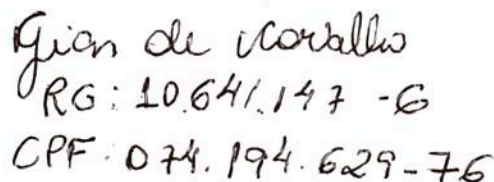 Gian de Carvalho
RG: 10.641.147-6
CPF. 074.194.629-76